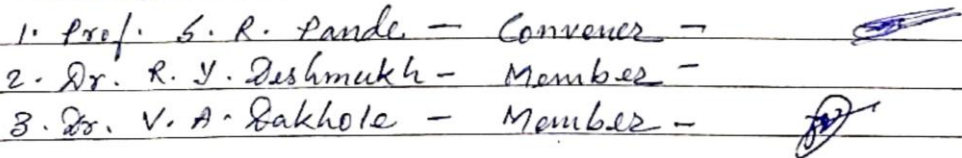 1. Prof. S. R. Pande - Convener -
2. Dr. R. Y. Deshmukh - Member -
3. Dr. V. A. Dakhole - Member -